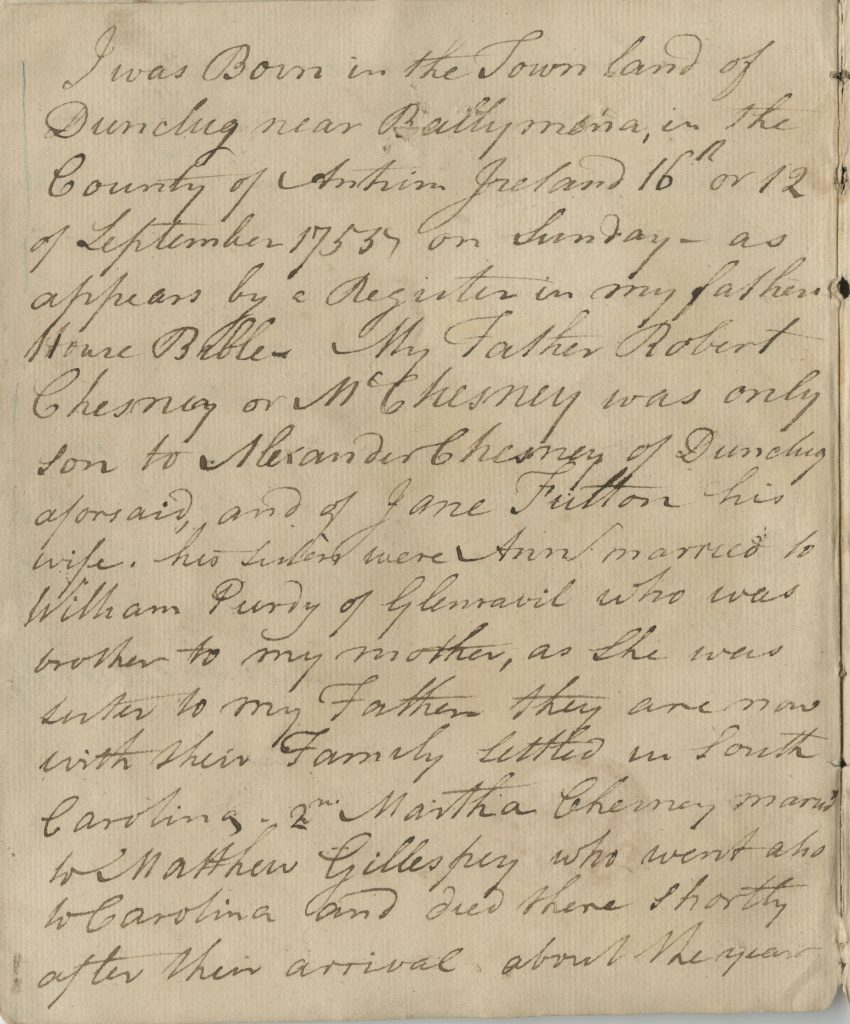 I was Born in the Town land of
Dunclug near Ballymena, in the
County of Antrim Ireland 16th or 12
of September 1755, on Sunday - as
appears by a Register in my father
House Bible - My Father Robert
Chesney or McChesney was only
son to Alexander Chesney of Dunclug
aforsaid, and of Jane Fulton his
wife. his sisters were Ann married to
William Purdy of Glenravil who was
brother to my mother, as She was
sister to my Father they are now
with their Family settled in South
Carolina - 2nd Martha Chesney married
to Matthew Gillespey who went also
to Carolina and died there shortly
after their arrival about the year